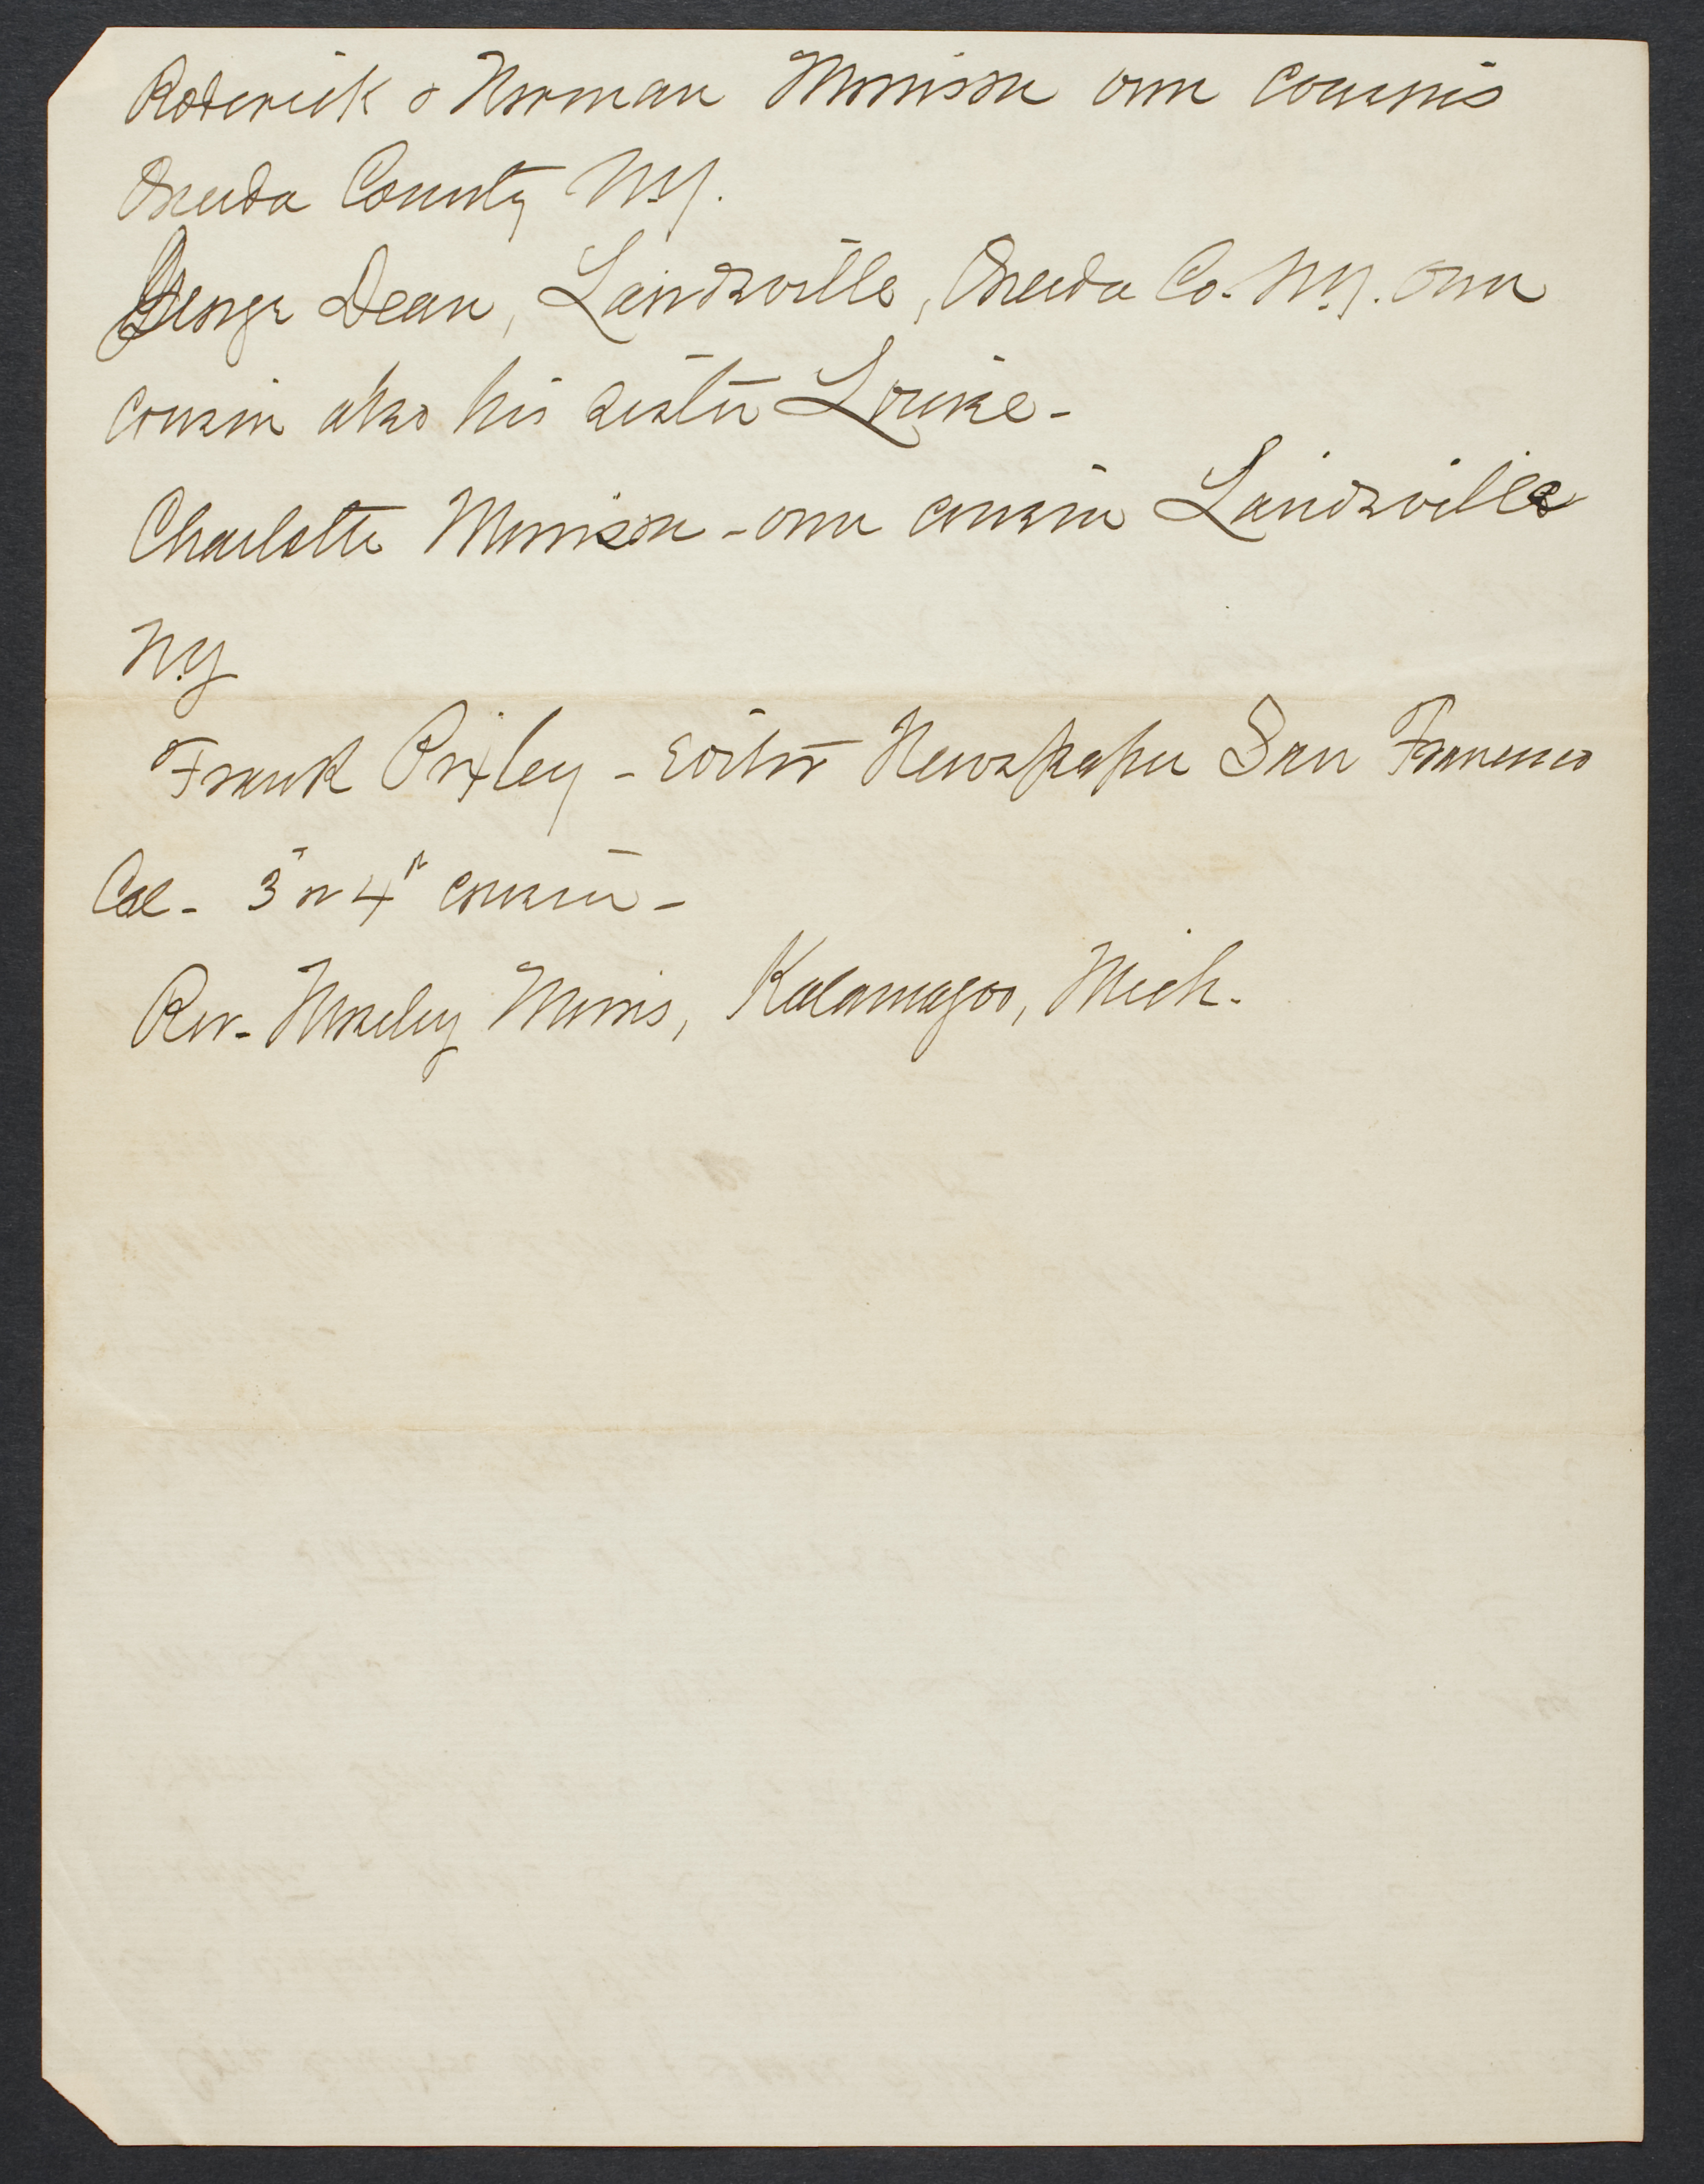 Roderick & Norman Morrison own cousins
Oneida County N.Y.
George Dean, Lairdsville, Oneida Co. N.Y. own
cousin also his sister Louise -
Charlotte Morrison - own cousin Lairdsville
N.Y
Frank Pixley - Editor Newspaper San Francisco
Cal - 3" or 4th cousin -
Rev. Moseley Morris, Kalamazoo, Mich.